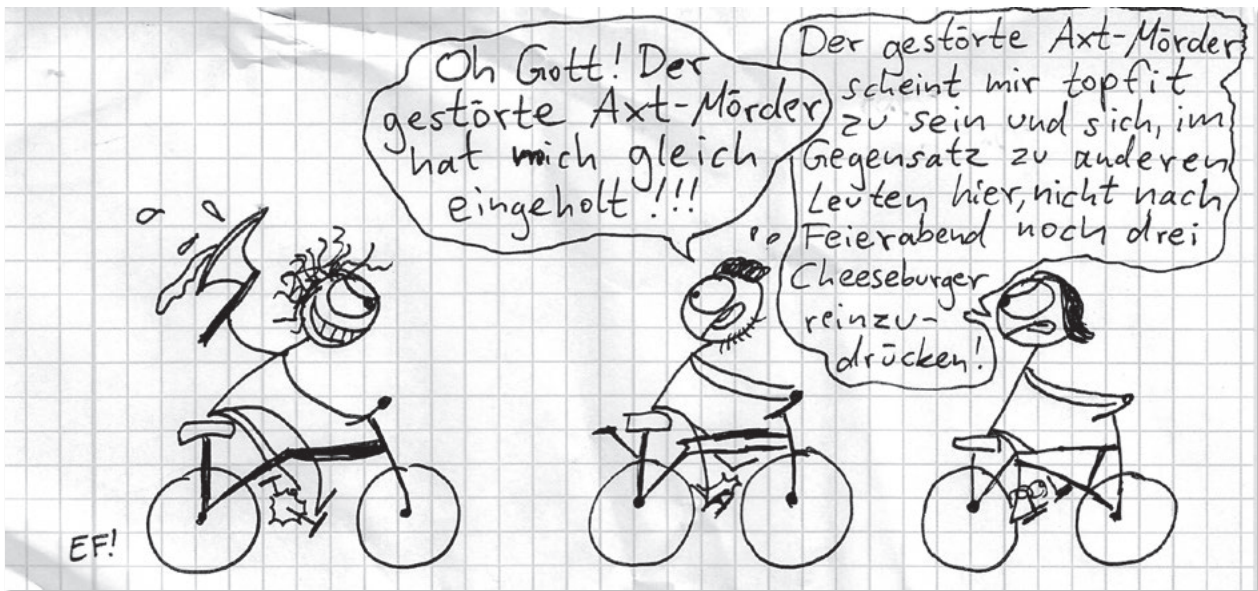 Oh Gott! Der
gestörte Axt-Mörder
hat mich gleich
eingeholt!!!
Der gestörte Axt-Mörder
scheint mir topfit
zu sein und sich, im
Gegensatz zu anderen
Leuten hier, nicht nach
Feierabend noch drei
Cheeseburger
reinzu-
drücken!
EF!